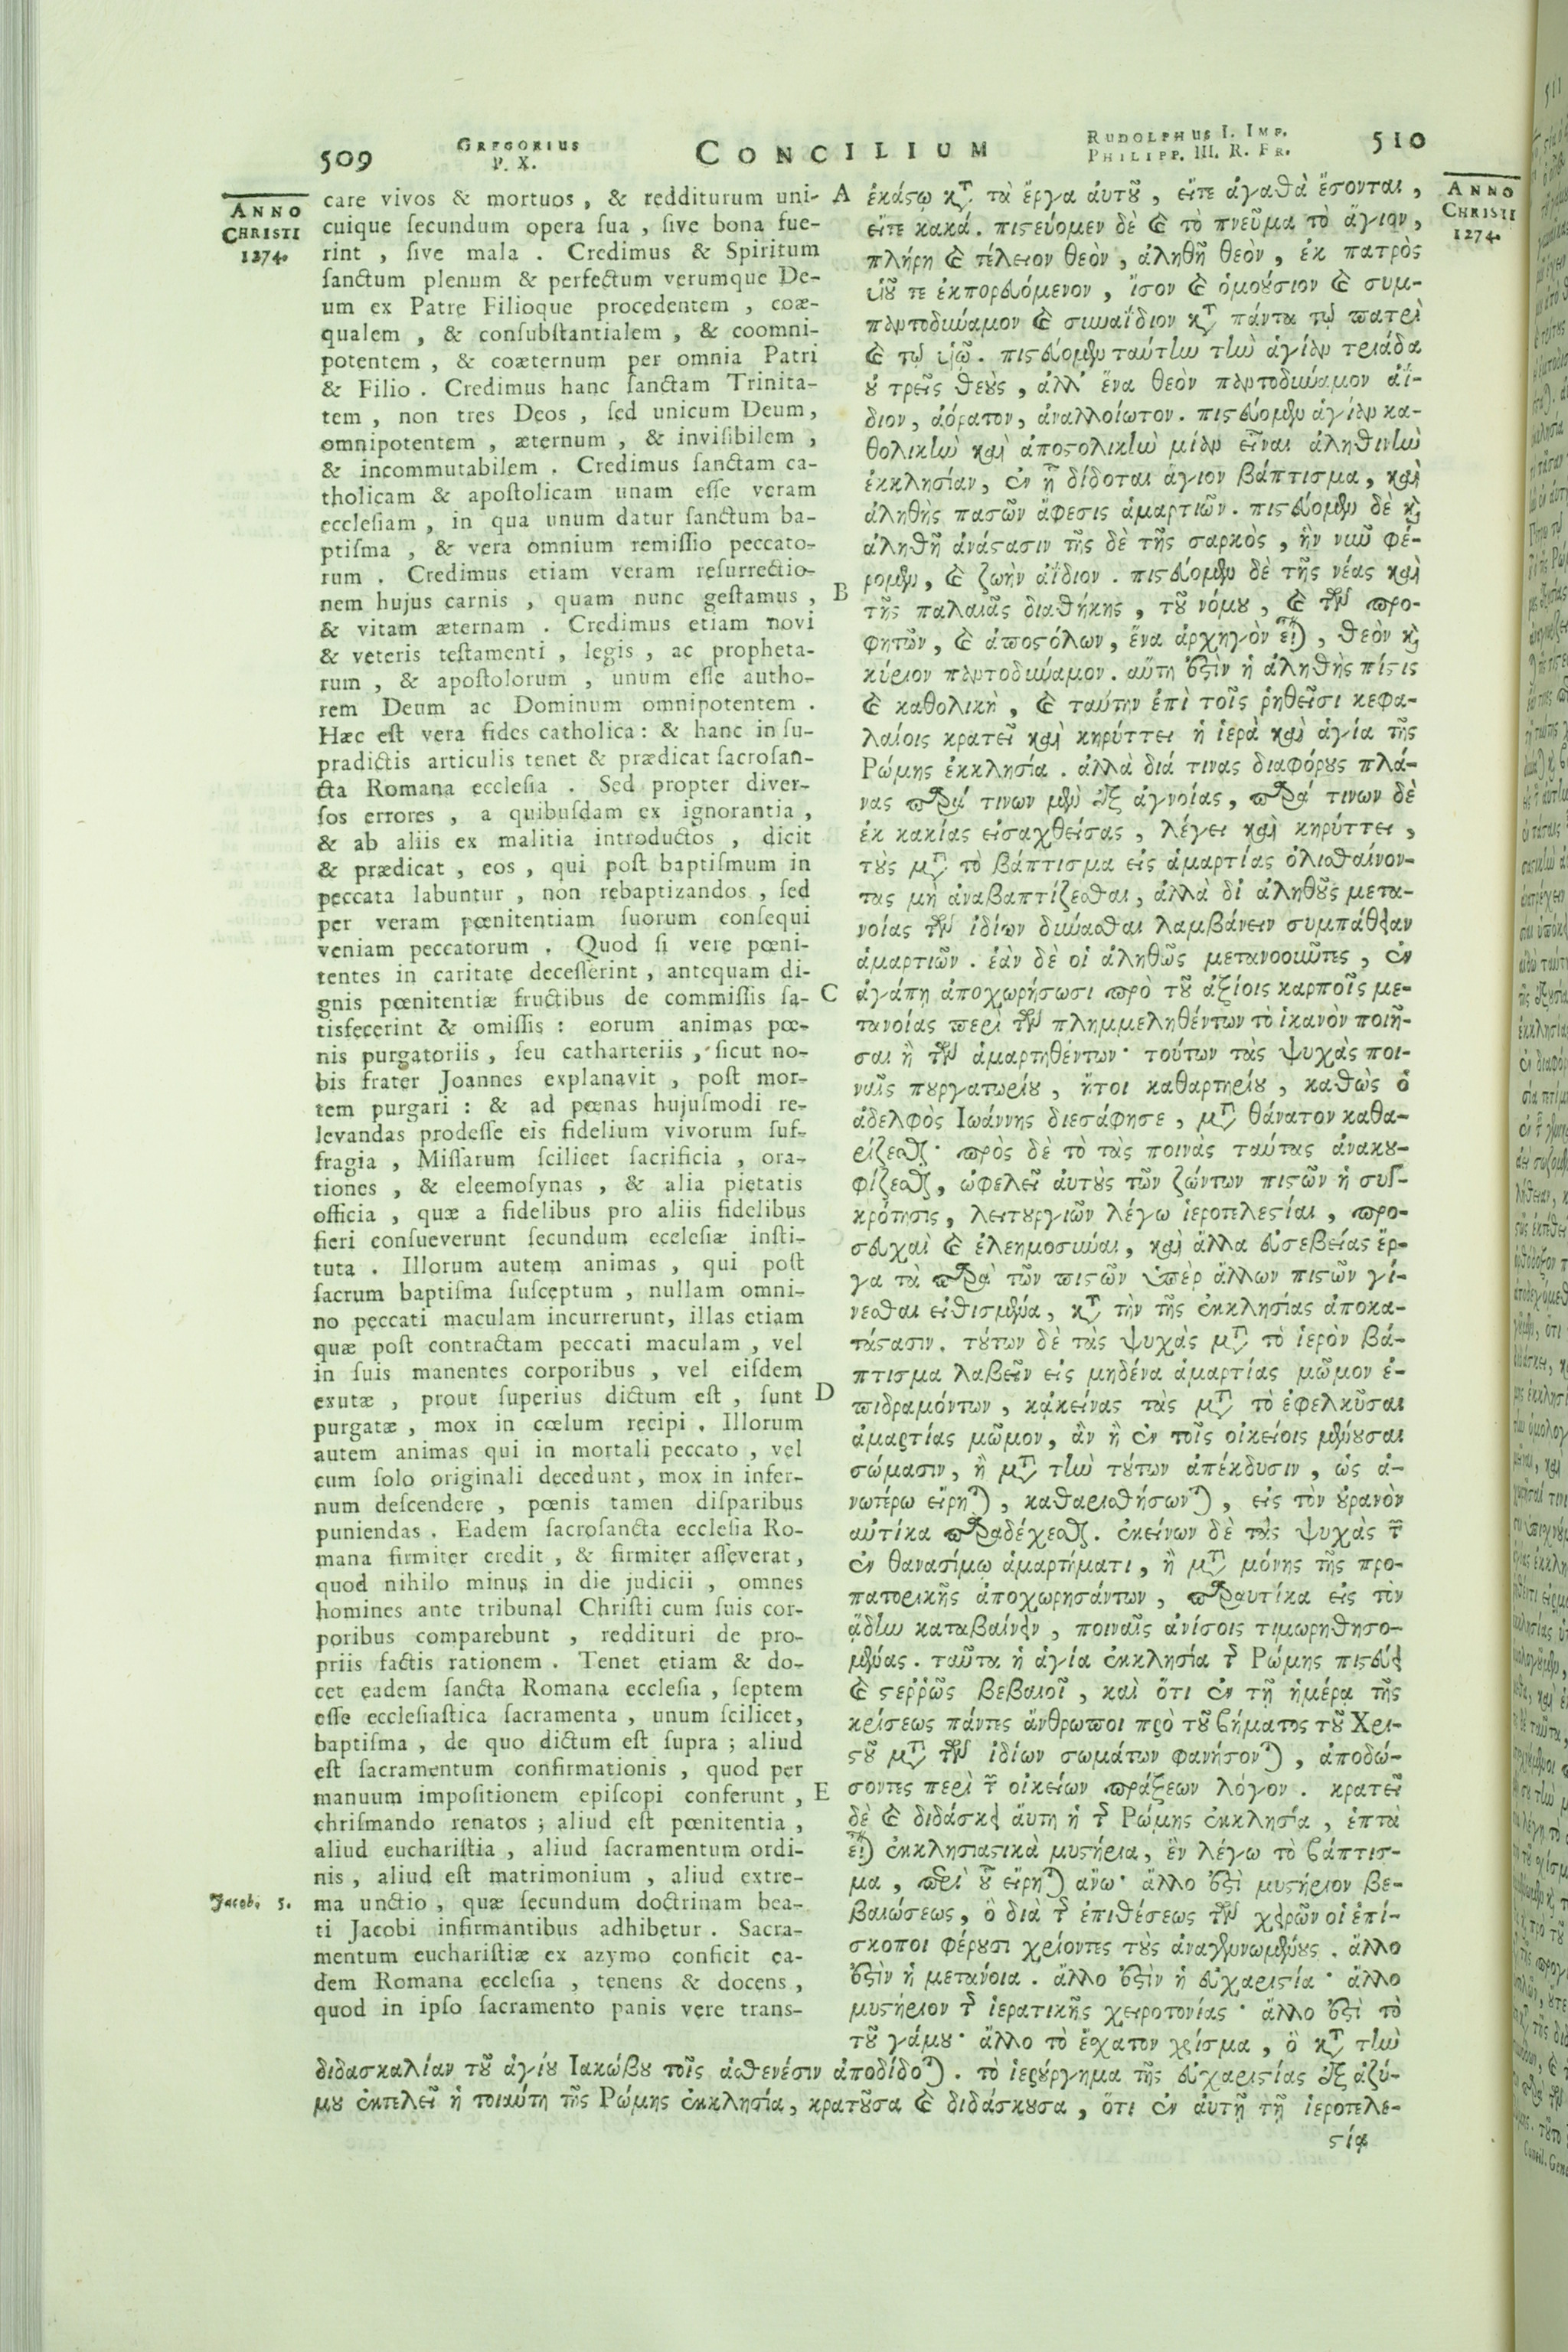 509
GREGORIUS
P. X.
CONCILIUM
RUDOLPHUS I. IMP.
PHILIPP. III. R. FR.
510
ANNO
CHRISTI
1274.
care vivos & mortuos , & redditurum uni-
cuique ſecundum opera ſua , ſive bona fue-
rint , ſive mala . Credimus & Spiritum
ſanctum plenum & perfectum verumque De-
um ex Patre Filioque procedentem , coæ-
qualem , & conſubſtantialem , & coomni-
potentem , & coæternum per omnia Patri
& Filio . Credimus hanc ſanctam Trinita-
tem , non tres Deos , ſed unicum Deum,
omnipotentem , æternum , & inviſibilem ,
& incommutabilem . Credimus ſanctam ca-
tholicam & apoſtolicam unam eſſe veram
eccleſiam , in qua unum datur ſanctum ba-
ptiſma , & vera omnium remiſſio peccato-
rum . Credimus etiam veram reſurrectio-
nem hujus carnis , quam nunc geſtamus ,
& vitam æternam . Credimus etiam novi
& veteris teſtamenti , legis , ac propheta-
rum , & apoſtolorum , unum eſſe autho-
rem Deum ac Dominum omnipotentem .
Hæc eſt vera fides catholica : & hanc in ſu-
pradictis articulis tenet & prædicat ſacroſan-
cta Romana eccleſia . Sed propter diver-
ſos errores , a quibuſdam ex ignorantia ,
& ab aliis ex malitia introductos , dicit
& prædicat , eos , qui poſt baptiſmum in
peccata labuntur , non rebaptizandos , ſed
per veram pœnitentiam ſuorum conſequi
veniam peccatorum . Quod ſi vere pœni-
tentes in caritate deceſſerint , antequam di-
gnis pœnitentiæ fructibus de commiſſis ſa-
tisfecerint & omiſſis : eorum animas pœ-
nis purgatoriis , ſeu catharteriis , ſicut no-
bis frater Joannes explanavit , poſt mor-
tem purgari : & ad pœnas hujuſmodi re-
levandas prodeſſe eis fidelium vivorum ſuf-
fragia , Miſſarum ſcilicet ſacrificia , ora-
tiones , & eleemoſynas , & alia pietatis
officia , quæ a fidelibus pro aliis fidelibus
fieri conſueverunt ſecundum eccleſiæ inſti-
tuta . Illorum autem animas , qui poſt
ſacrum baptiſma ſuſceptum , nullam omni-
no peccati maculam incurrerunt, illas etiam
quæ poſt contractam peccati maculam , vel
in ſuis manentes corporibus , vel eiſdem
exutæ , prout ſuperius dictum eſt , ſunt
purgatæ , mox in cœlum recipi . Illorum
autem animas qui in mortali peccato , vel
cum ſolo originali decedunt, mox in infer-
num deſcendere , pœnis tamen diſparibus
puniendas . Eadem ſacroſancta eccleſia Ro-
mana firmiter credit , & firmiter aſſeverat ,
quod nihilo minus in die judicii , omnes
homines ante tribunal Chriſti cum ſuis cor-
poribus comparebunt , reddituri de pro-
priis factis rationem . Tenet etiam & do-
cet eadem ſancta Romana eccleſia , ſeptem
eſſe eccleſiaſtica ſacramenta , unum ſcilicet,
baptiſma , de quo dictum eſt ſupra ; aliud
eſt ſacramentum confirmationis , quod per
manuum impoſitionem epiſcopi conferunt ,
chriſmando renatos ; aliud eſt pœnitentia ,
aliud euchariſtia , aliud ſacramentum ordi-
nis , aliud eſt matrimonium , aliud extre-
Jacob. 5.
ma unctio , quæ ſecundum doctrinam bea-
ti Jacobi infirmantibus adhibetur . Sacra-
mentum euchariſtiæ ex azymo conficit ea-
dem Romana eccleſia , tenens & docens ,
quod in ipſo ſacramento panis vere trans-
A
B
C
D
E
ANNO
CHRISTI
1274.
ἑκάϛῳ κτ τὰ ἔργα ἀυτȣ͂ , εἴτε ἀγαθὰ ἔσονται ,
εἴτε κακά. πιϛεύομεν δὲ ϗ τὸ πνεῦμα τὸ ἅγιον ,
πλήρη ϗ τέλειον θεὸν , ἀληθῆ θεὸν , ἐκ πατρὸς
ὑιȣ͂ τε ἐκπορευόμενον , ἴσον ϗ ὁμοȣ́σιον ϗ συμ-
παντοδύναμον ϗ συναΐδιον κτ πάντα τῷ πατρὶ
ϗ τῷ ὑιῷ. πιϛεύομεν ταύτην τὴν ἁγίαν τριάδα
ȣ̓ τρεῖς θεȣ̀ς , ἀλλ’ ἕνα θεὸν παντοδύναμον ἀΐ-
διον , ἀόρατον, ἀναλλοίωτον. πιϛεύομεν ἁγίαν κα-
θολικὴν καὶ ἀποϛολικὴν μίαν εἶναι ἀληθινὴν
ἐκκλησίαν, ἐν ᾗ δίδοται ἅγιον βάπτισμα, καὶ
ἀληθὴς πασῶν ἄφεσις ἁμαρτιῶν. πιϛεύομεν δὲ ϗ
ἀληθῆ ἀνάϛασιν τῆς δὲ τῆς σαρκὸς , ἣν νῦν φέ-
ρομεν, ϗ ζωὴν ἀΐδιον . πιϛεύομεν δὲ τῆς νέας καὶ
τῆς παλαιᾶς διαθήκης , τȣ͂ νόμȣ , ϗ τῶν προ-
φητῶν, ϗ ἀποϛόλων, ἕνα ἀρχηγὸν εἶναι , θεὸν ϗ
κύριον παντοδύναμον. αὕτη ἐϛὶν ἡ ἀληθὴς πίϛις
ϗ καθολικὴ , ϗ ταύτην ἐπὶ τοῖς ῥηθεῖσι κεφα-
λαίοις κρατεῖ καὶ κηρύττει ἡ ἱερὰ καὶ ἁγία τῆς
Ρώμης ἐκκλησία . ἀλλὰ διά τινας διαφόρȣς πλά-
νας παρά τινων μὲν ἐξ ἀγνοίας, παρά τινων δὲ
ἐκ κακίας εἰσαχθείσας , λέγει καὶ κηρύττει ,
τȣ̀ς μτ τὸ βάπτισμα εἰς ἁμαρτίας ὀλισθαίνον-
τας μὴ ἀναβαπτίζεσθαι, ἀλλὰ δι ἀληθȣ͂ς μετα-
νοίας τῶν ἰδίων δύνασθαι λαμβάνειν συμπάθειαν
ἁμαρτιῶν . ἐὰν δὲ οἱ ἀληθῶς μετανοοῦντες , ἐν
ἀγάπῃ ἀποχωρήσωσι πρὸ τȣ͂ ἀξίοις καρποῖς με-
τανοίας περὶ τῶν πλημμεληθέντων τὸ ἱκανὸν ποιῆ-
σαι ἢ τῶν ἁμαρτηθέντων· τούτων τὰς ψυχὰς ποι-
ναῖς πȣργατωρίȣ , ἤτοι καθαρτηρίȣ , καθὼς ὁ
ἀδελφὸς Ιωάννης διεσάφησε , μτ θάνατον καθα-
ρίζεσθαι· πρὸς δὲ τὸ τὰς ποινὰς ταύτας ἀνακȣ-
φίζεσθαι, ὠφελεῖ ἀυτȣ̀ς τῶν ζώντων πιϛῶν ἡ συγ-
κρότησις, λειτȣργιῶν λέγω ἱεροτελεϛίαι , προ-
σευχαὶ ϗ ἐλεημοσύναι, καὶ ἄλλα ἐυσεβείας ἔρ-
γα τὰ παρὰ τῶν πιϛῶν ὑπὲρ ἄλλων πιϛῶν γί-
νεσθαι εἰθισμένα, κτ τὴν τῆς ἐκκλησίας ἀποκα-
τάϛασιν. τȣ́των δὲ τὰς ψυχὰς μτ τὸ ἱερὸν βά-
πτισμα λαβεῖν εἰς μηδένα ἁμαρτίας μῶμον ἐ-
πιδραμόντων , κἀκείνας τὰς μτ τὸ ἐφελκῦσαι
ἁμαρτίας μῶμον, ἂν ἢ ἐν τοῖς οἰκείοις μένȣσαι
σώμασιν, ἢ μτ τὴν τȣ́των ἀπέκδυσιν , ὡς ἀ-
νωτέρω εἴρηται, καθαρισθήσωνται, εἰς τὸν ȣ̓ρανὸν
αὐτίκα παραδέχεσθαι. ἐκείνων δὲ τὰς ψυχὰς τῶν
ἐν θανασίμῳ ἁμαρτήματι, ἢ μτ μόνης τῆς προ-
πατορικῆς ἀποχωρησάντων , παραυτίκα εἰς τὸν
ᾅδην καταβαίνειν , ποιναῖς ἀνίσοις τιμωρηθησο-
μένας. ταῦτα ἡ ἁγία ἐκκλησία τῆς Ρώμης πιϛεύει
ϗ ϛεῤῥῶς βεβαιοῖ , καὶ ὅτι ἐν τῇ ἡμέρᾳ τῆς
κρίσεως πάντες ἄνθρωποι πρὸ τȣ͂ βήματος τȣ͂ Χρι-
ϛȣ͂ μτ τῶν ἰδίων σωμάτων φανήσονται, ἀποδώ-
σοντες περὶ τῶν οἰκείων πράξεων λόγον . κρατεῖ
δὲ ϗ διδάσκει ἅυτη ἡ τῆς Ρώμης ἐκκλησία , ἑπτὰ
εἶναι ἐκκλησιαϛικὰ μυϛήρια, ἓν λέγω τὸ βάπτισ-
μα , περὶ ȣ͗ εἴρηται ἄνω· ἄλλο ἐϛὶ μυϛήριον βε-
βαιώσεως, ὃ διὰ τῆς ἐπιθέσεως τῶν χειρῶν οἱ ἐπί-
σκοποι φέρȣσι χρίοντες τȣ̀ς ἀναγεννωμένȣς . ἄλλο
ἐϛὶν ἡ μετάνοια . ἄλλο ἐϛὶν ἡ ἐυχαριϛία · ἄλλο
μυϛήριον τῆς ἱερατικῆς χειροτονίας · ἄλλο ἐϛὶ τὸ
τȣ͂ γάμȣ· ἄλλο τὸ ἔσχατον χρίσμα , ὃ κτ τὴν
διδασκαλίαν τȣ͂ ἁγίȣ Ιακώβȣ τοῖς ἀσθενέσιν ἀποδίδοται. τὸ ἱερȣ́ργημα τῆς ἐυχαριϛίας ἐξ ἀζύ-
μȣ ἐκτελεῖ ἡ τοιαύτη τῆς Ρώμης ἐκκλησία, κρατȣ͂σα ϗ διδάσκȣσα , ὅτι ἐν ἀυτῇ τῇ ἱεροτελε-
ϛίᾳ